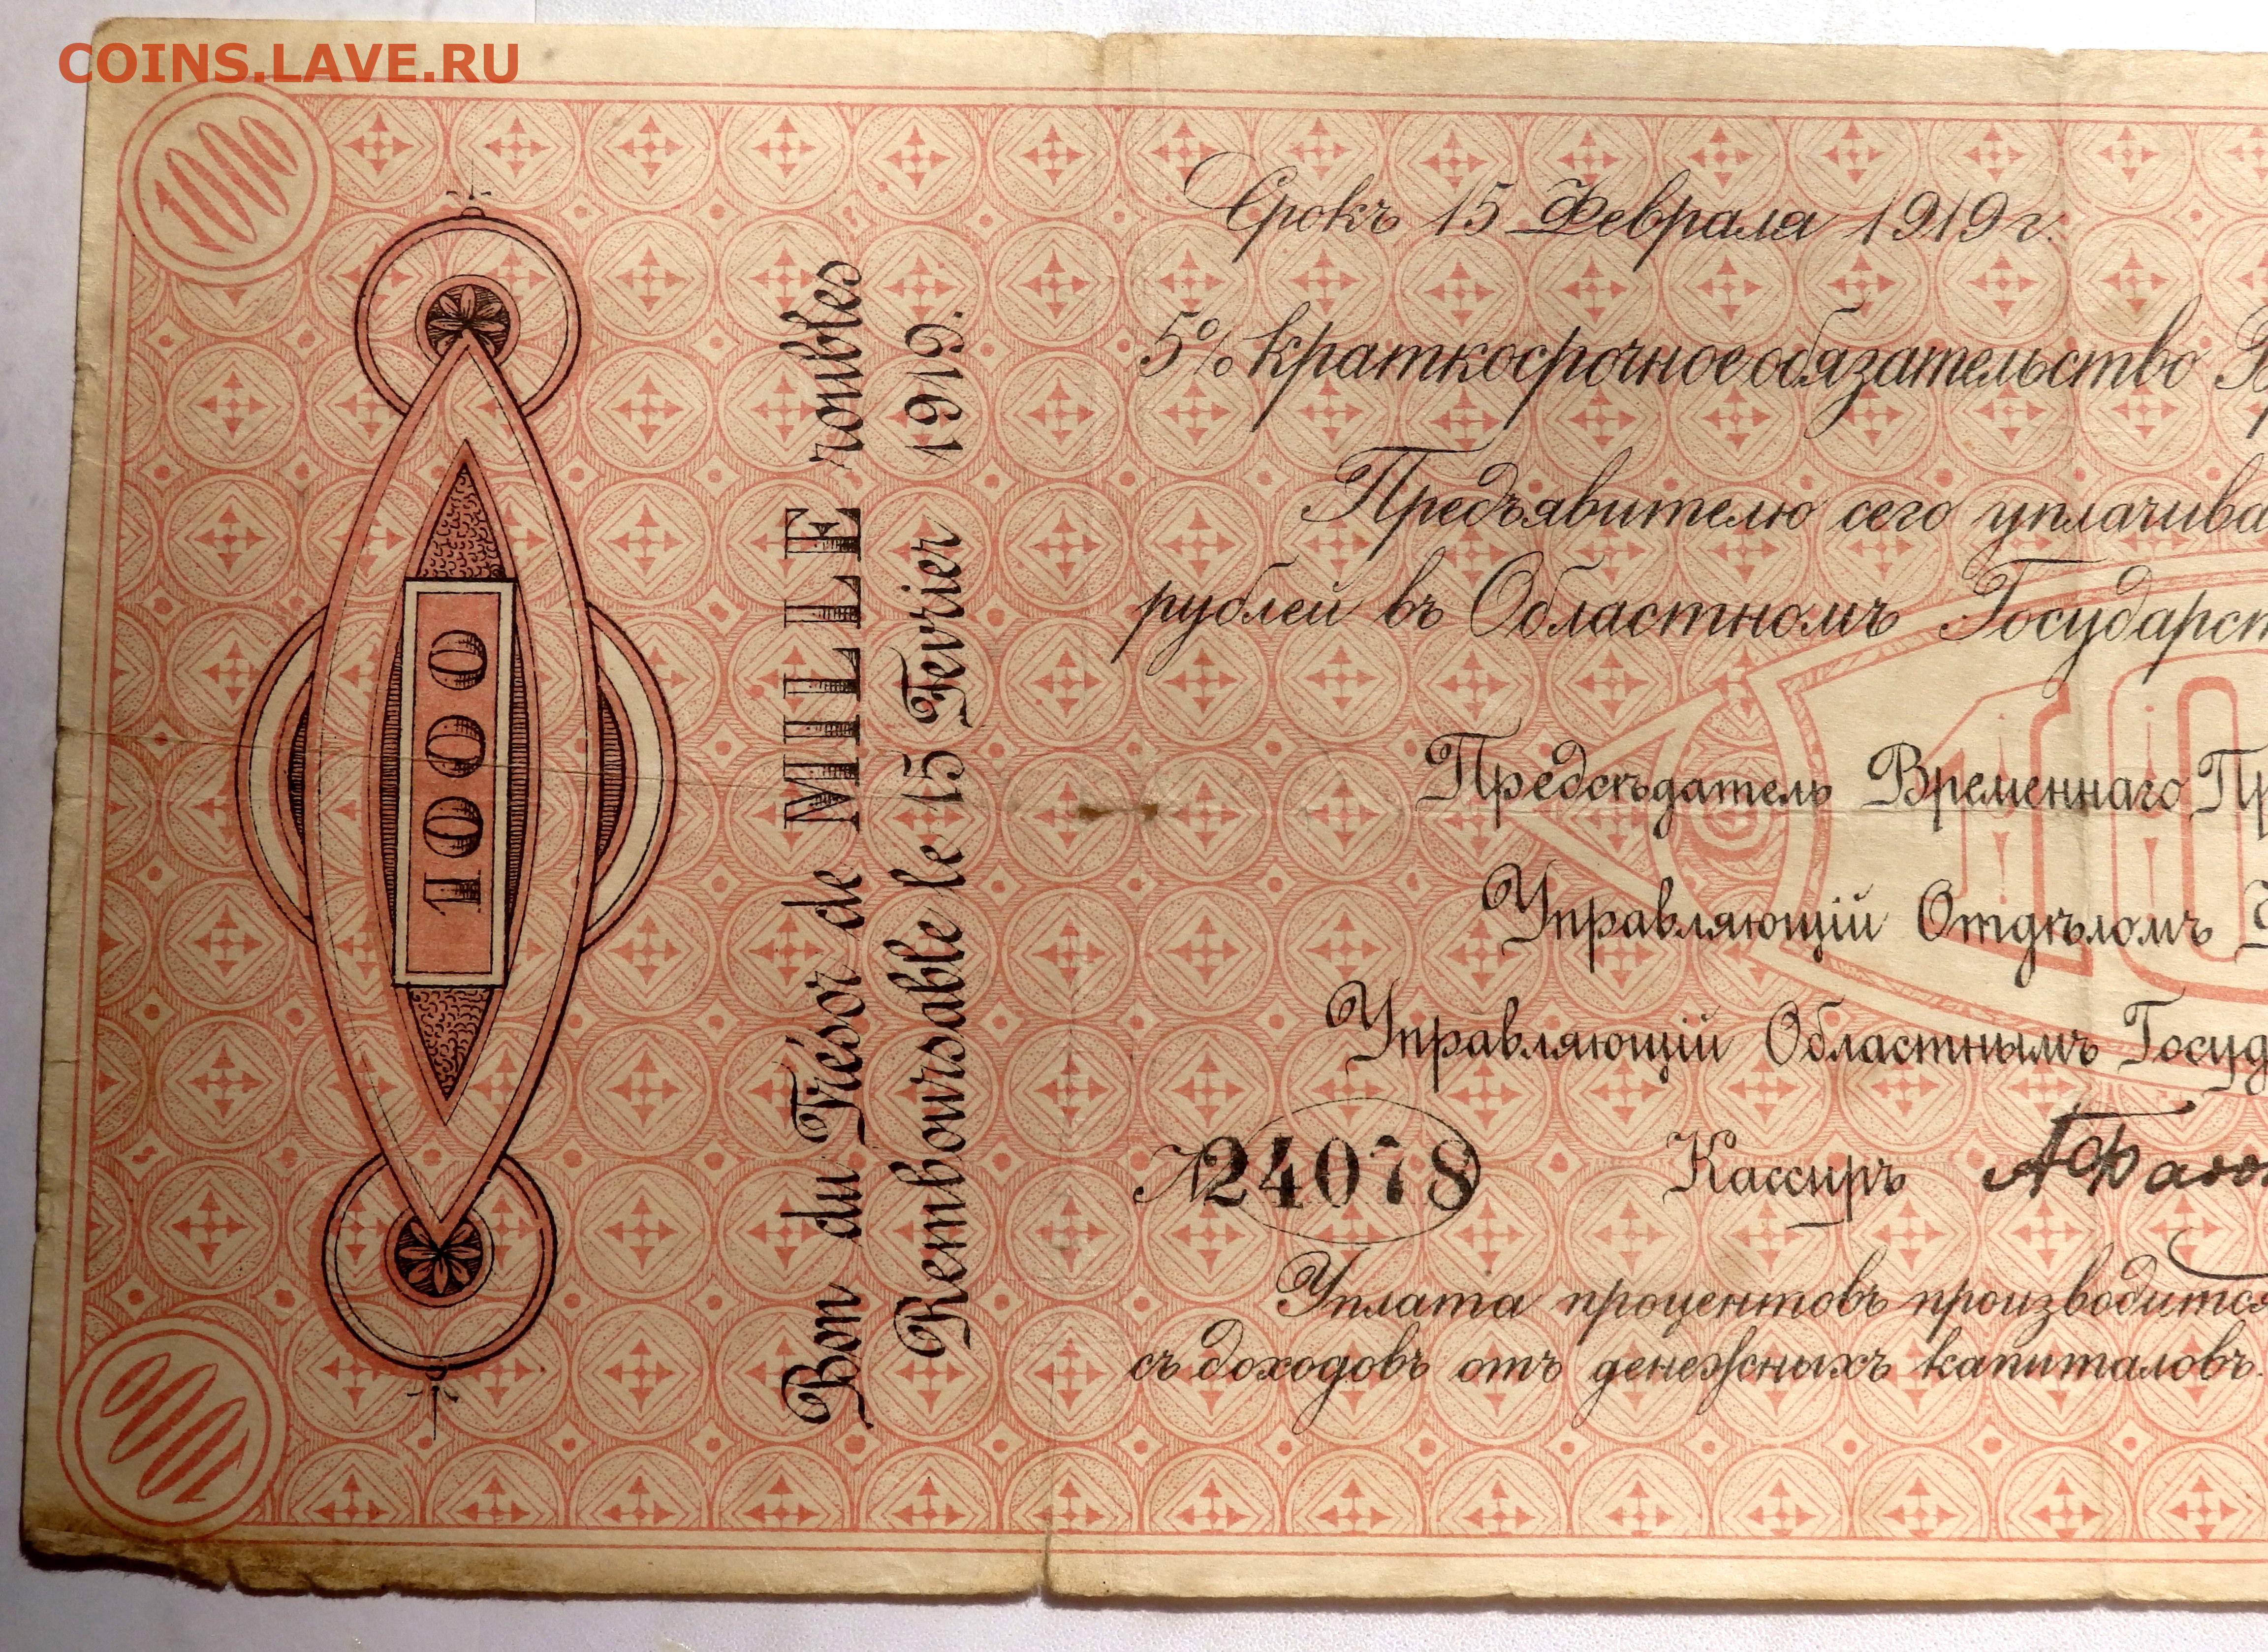 COINS.LAVE.RU
1000
1000
1000
Bon du Trésor de MILLE roubles
Remboursable le 15 Fevrier 1919.
Срокъ 15 Февраля 1919 г.
5% краткосрочное обязательство
Предъявителю сего уплачива
рублей въ Областномъ Государст
10
Предсѣдатель Временнаго Пр
Управляющій Отдѣломъ
Управляющій Областнымъ Госуд
№ 24078
Кассиръ
Уплата процентовъ производится
съ доходовъ отъ денежныхъ капиталовъ.